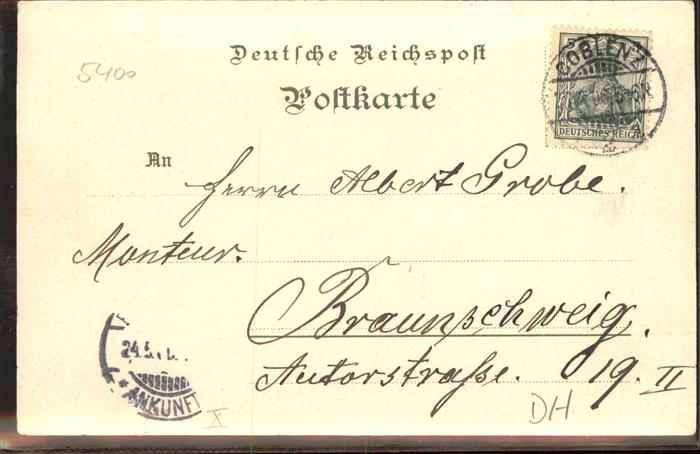 Deutsche Reichspost
Postkarte
5400
COBLENZ
DEUTSCHES REICH
An
Herrn Albert Grobe.
Monteur.
Braunschweig.
Autorstraße. 19. II
24.5.
ANKUNFT
X
DH